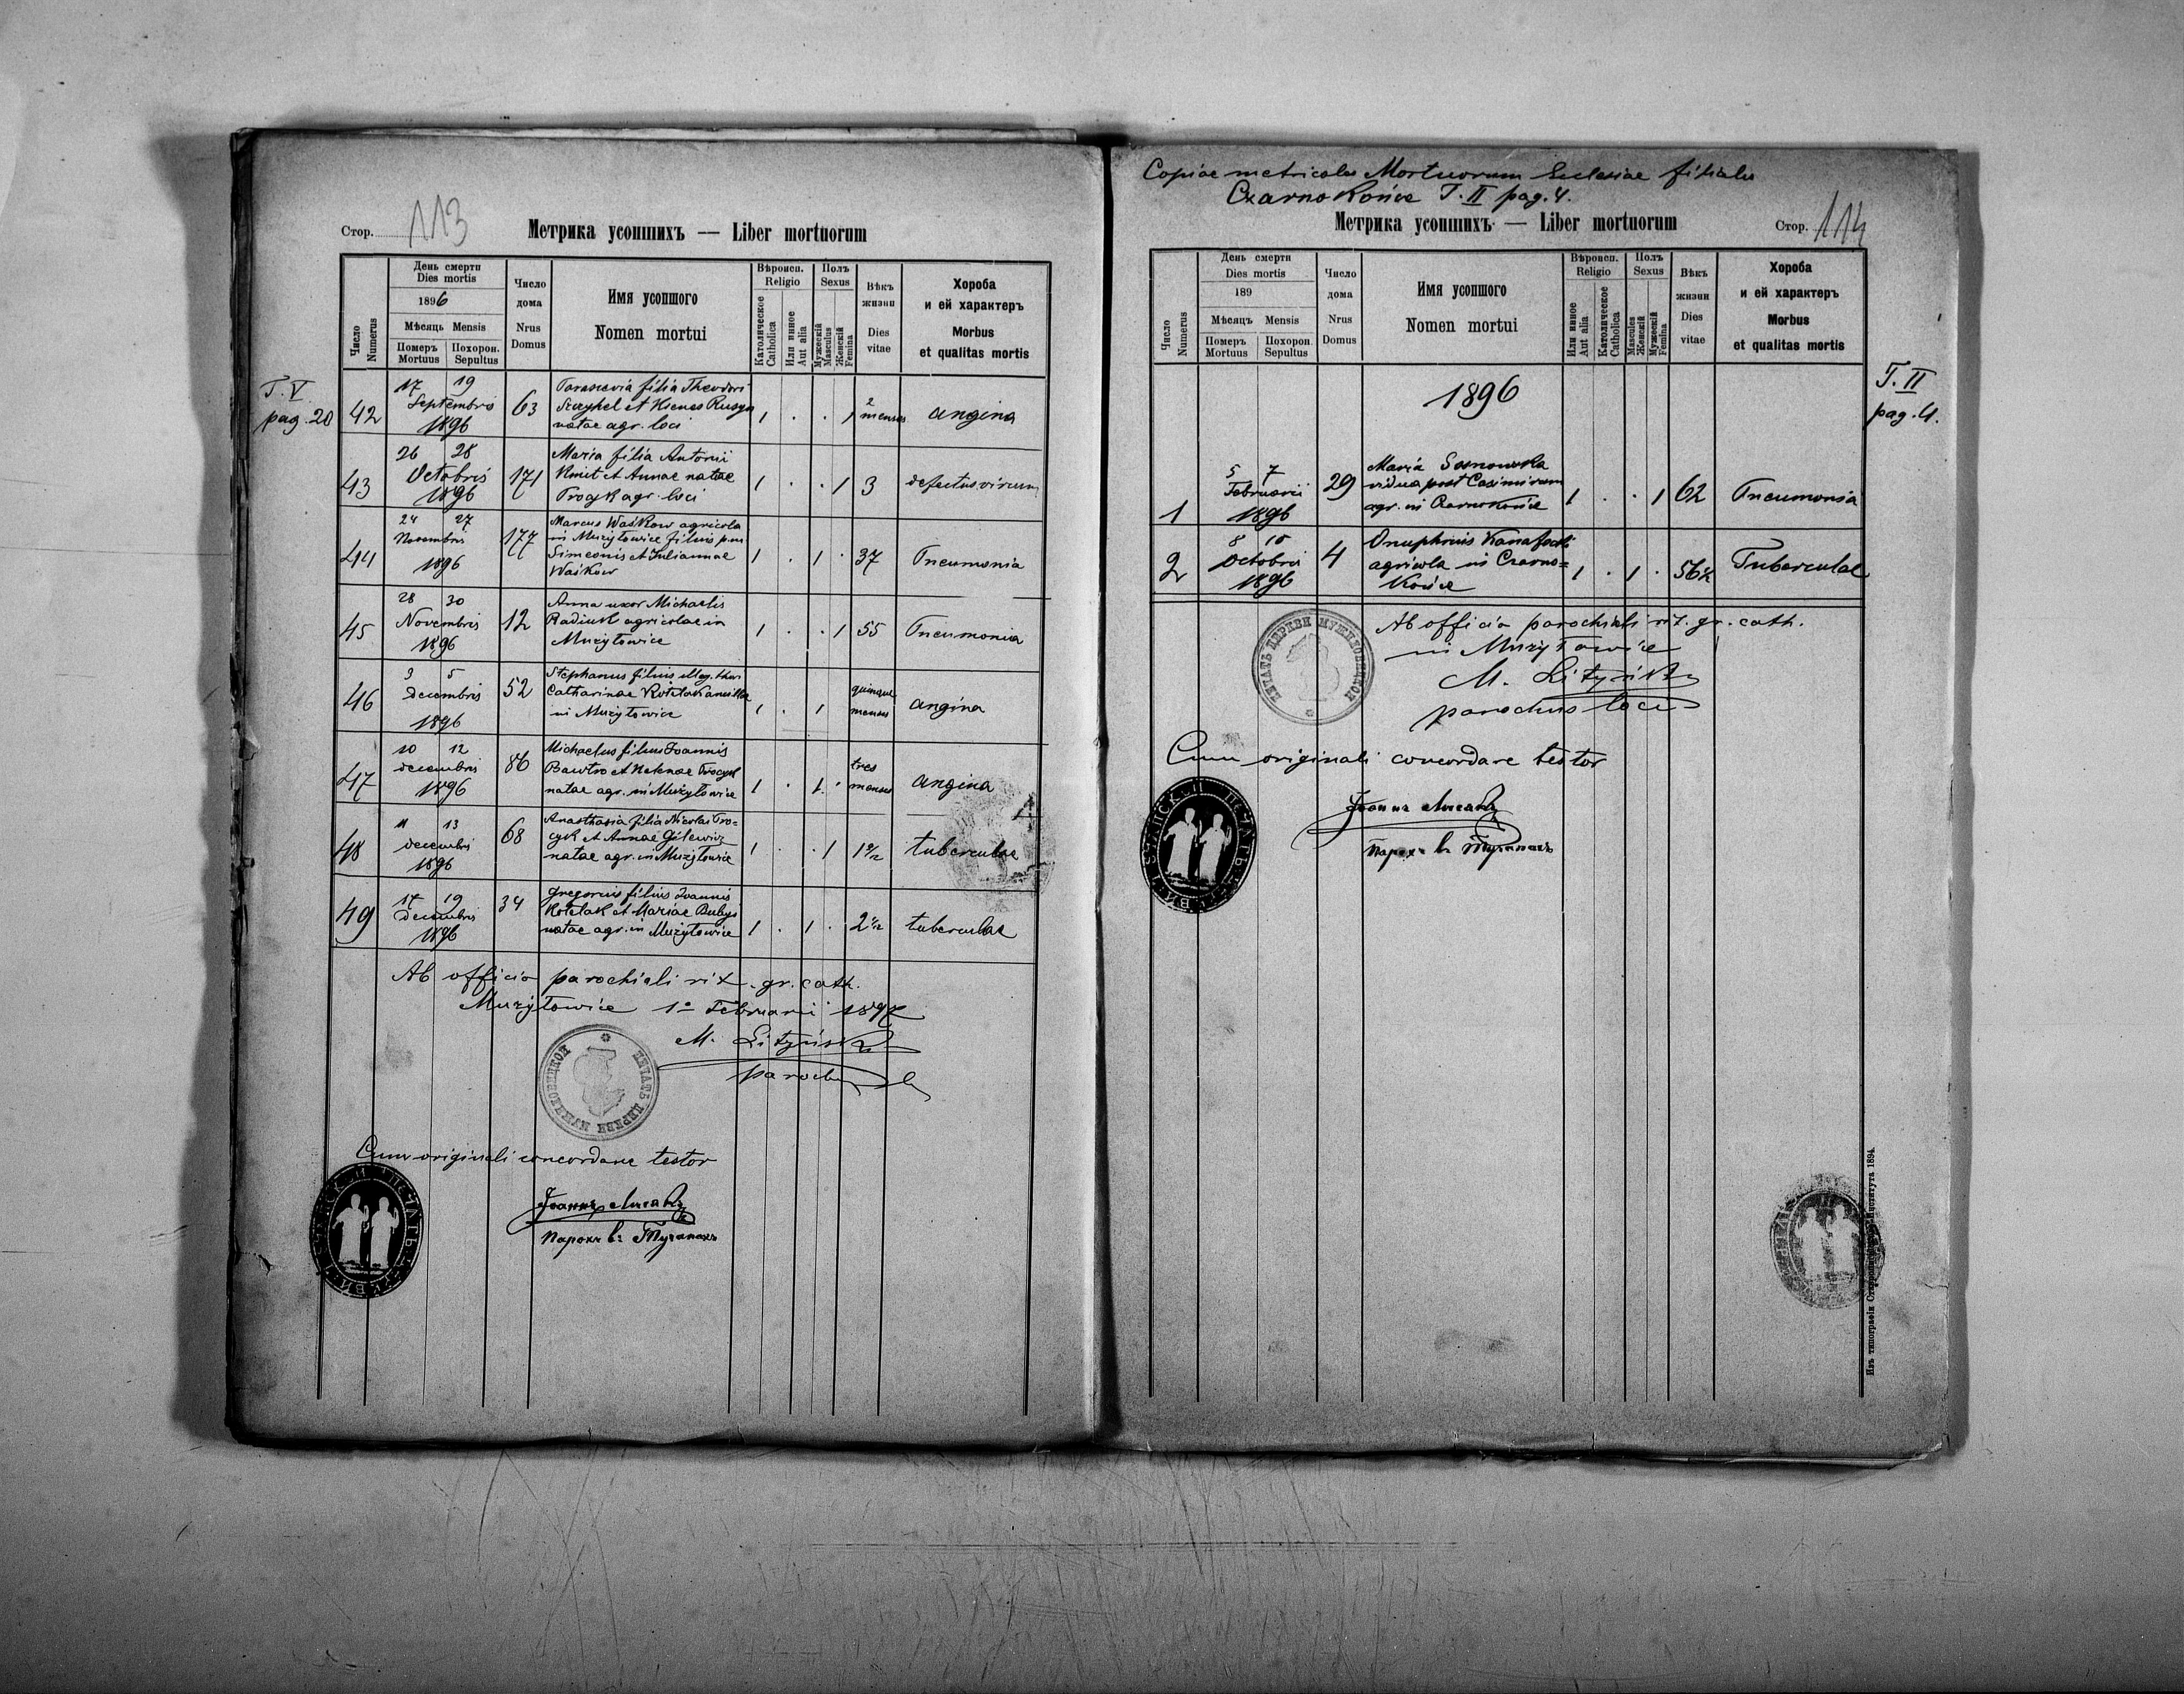 Стор. 113
Метрика усопшихъ — Liber mortuorum
Число Numerus
День смерти
Dies mortis
1896
Мѣсяць Mensis
Померъ Mortuus
Похорон. Sepultus
Число дома
Nrus Domus
Имя усопшого
Nomen mortui
Вѣроисп.
Religio
Католическое Catholica
Или инное Aut alia
Полъ
Sexus
Мужескій Masculus
Женскій Femina
Вѣкъ жизни
Dies vitae
Хороба
и ей характеръ
Morbus
et qualitas mortis
T. V.
pag. 20
42
17 19
Septembris
1896
63
Parascevia filia Theodori
et Rusyn
natae agr. loci
1 . . 1
2
menses
angina
43
26 28
Octobris
1896
171
Maria filia Antonii
Kmit et Annae natae
agr. loci
1 . . 1
3
defectus virium
44
24 27
Novembris
1896
177
Marcus Waśkow agricola
in Mużyłowice filius p.m.
Simeonis et Juliannae
Waśkow
1 . 1 .
37
Pneumonia
45
28 30
Novembris
1896
12
Anna uxor Michaelis
Radiuk agricolae in
Mużyłowice
1 . . 1
55
Pneumonia
46
3 5
Decembris
1896
52
Stephanus filius illeg. thori
Catharinae
in Mużyłowice
1 . 1
quinque
menses
angina
47
10 12
decembris
1896
86
Michaelus filius Joannis
et Helenae
natae agr. in Mużyłowice
1 . 1 .
tres
menses
angina
48
11 13
decembri
1896
68
Anasthasia filia Nicolai Tro=
cyk et Annae Gilewicz
natae agr. in Mużyłowice
1 . . 1
tuberculae
49
17 19
Decembris
1896
34
Gregorius filius Joannis
Kotelak et Mariae
natae agr. in Mużyłowice
1 . 1 .
tuberculae
Ab officio parochiali rit. gr. cath.
Mużyłowice 1° Februarii 1897
M. Lityński
parochus
ПЕЧАТЬ ЦЕРКВИ МУЖИЛОВИЦКОЙ
Cum originali concordare testor
Іоаннъ
Парохъ въ Тучапахъ
Copiae metricales Mortuorum Ecclesiae filialis
Czarnokońce T. II pag. 4.
Метрика усопшихъ — Liber mortuorum
Стор. 114
Число Numerus
День смерти
Dies mortis
189
Мѣсяць Mensis
Померъ Mortuus
Похорон. Sepultus
Число дома
Nrus Domus
Имя усопшого
Nomen mortui
Вѣроисп.
Religio
Или инное Aut alia
Католическое Catholica
Полъ
Sexus
Masculus Женскій
Мужескій Femina
Вѣкъ жизни
Dies vitae
Хороба
и ей характеръ
Morbus
et qualitas mortis
1896
T. II
pag. 4.
1
5 7
Februarii
1896
29
Maria Sosnowska
vidua post Casimirum
agr. in Czarnokońce
1 . . 1
62
Pneumonia
2
8 10
Octobris
1896
4
Onuphrius
agricola in Czarno=
końce
1 . 1 .
56½
Tuberculae
Ab officio parochiali rit. gr. cath.
in Mużyłowice
M. Lityński
parochus loci
ПЕЧАТЬ ЦЕРКВИ МУЖИЛОВИЦКОЙ
Cum originali concordare testor
Іоаннъ
Парохъ въ Тучапахъ
Изъ типографіи Ставропигійского Института 1894.